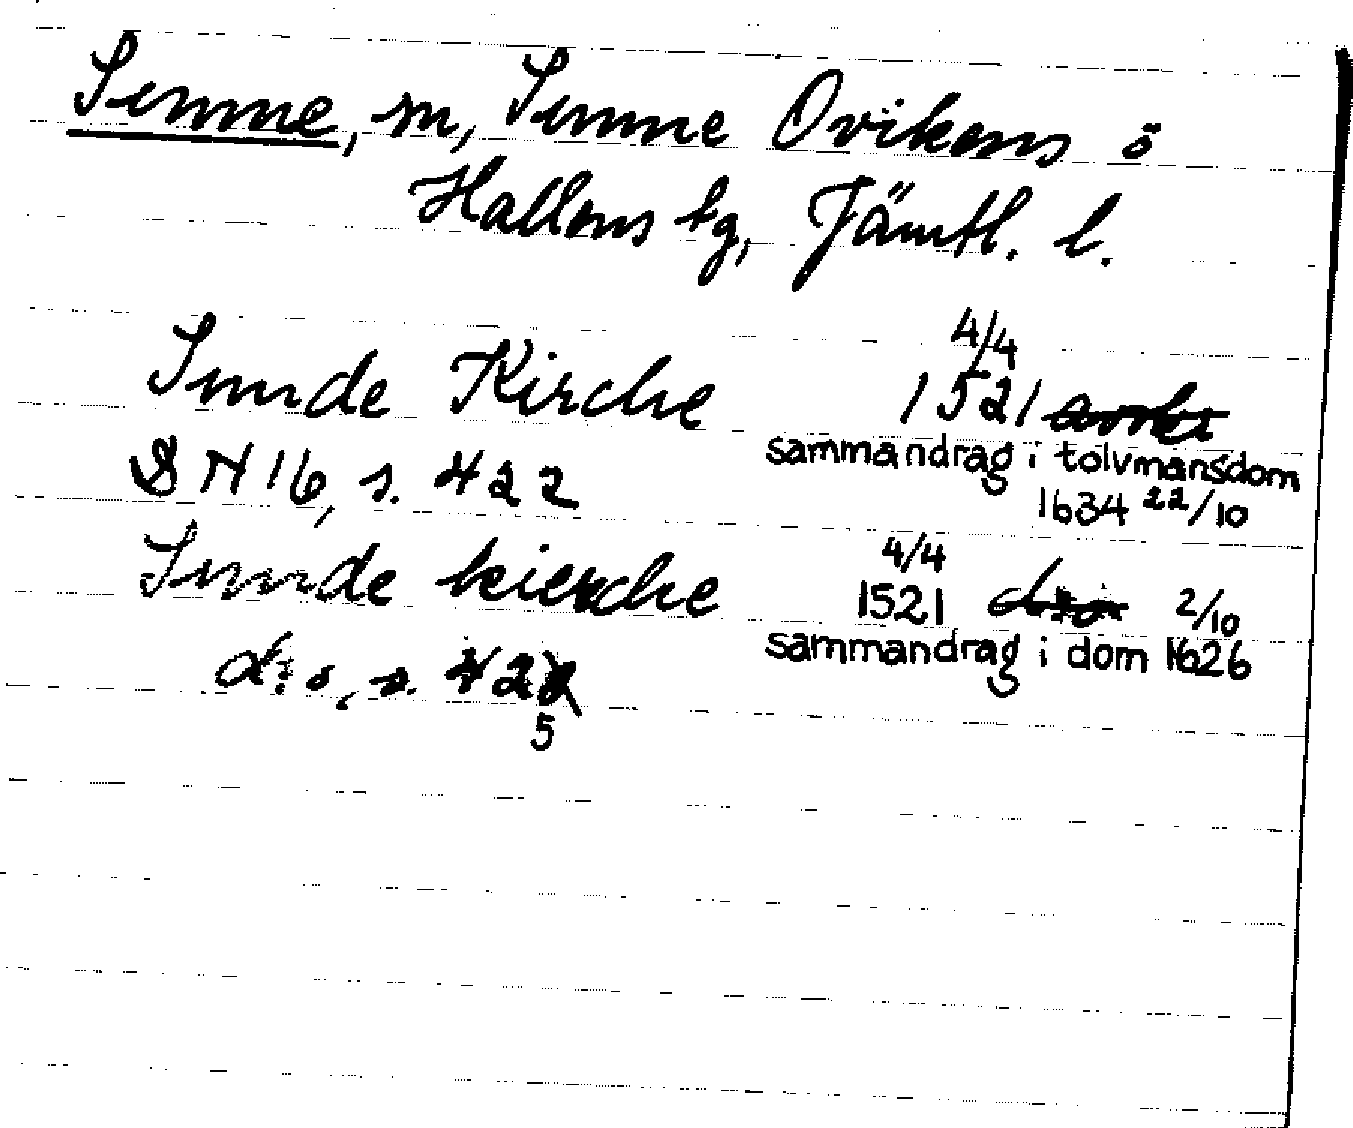 Sunne, sn, Sunne Ovikens ö
Hallens tg, Jämtl. l.
4/4
Sunde Kirche 1521
sammandrag i tolvmansdom
DN 16, s. 422 1634 22/10
4/4
Sunde kierche 1521 2/10
sammandrag i dom 1626
d:o, s. 422
5